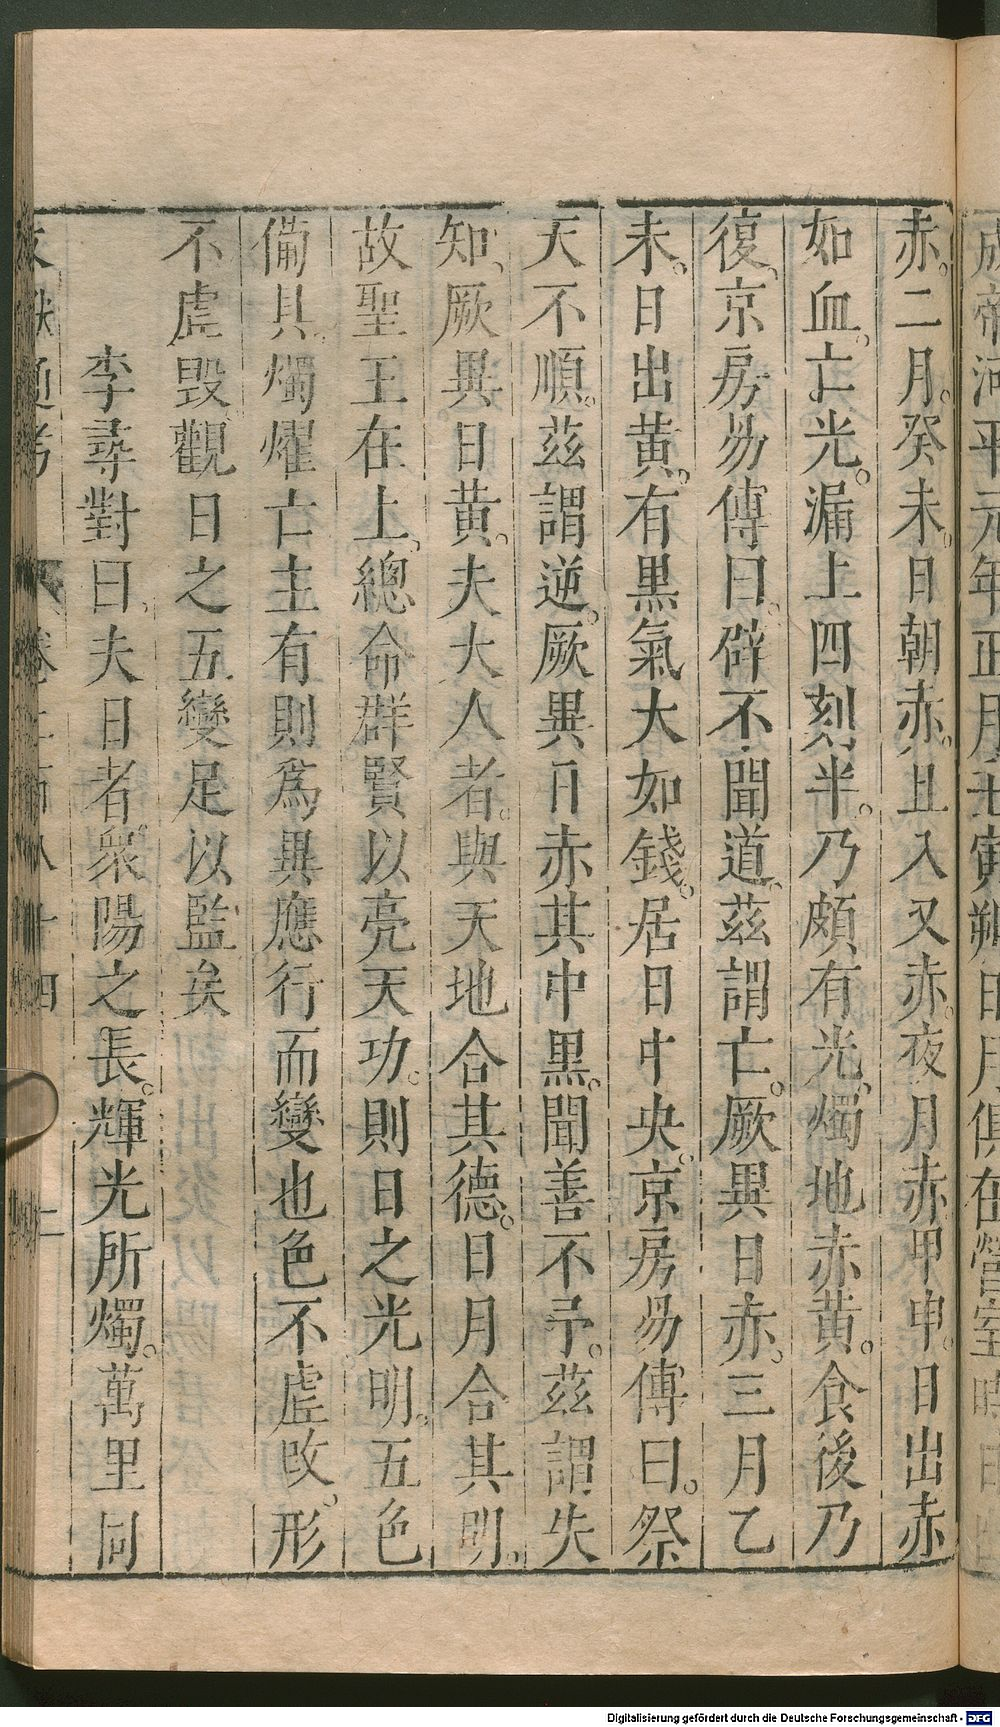 成帝河平元年正月壬寅朔日月俱在營室時日出
赤。二月。癸未。日朝赤。且入又赤。夜月赤甲申。日出赤
如血。亡光。漏上四刻半。乃頗有光。燭地赤黃。食後乃
復。京房易傳曰。辟不聞道。茲謂亡。厥異日赤。三月乙
未。日出黃。有黑氣大如錢。居日中央。京房易傳曰。祭
天不順。茲謂逆。厥異日赤其中黑。聞善不予。茲謂失
知。厥異。日黃。夫大人者。與天地合其德。日月合其明。
故聖王在上。總命群賢以亮天功。則日之光明。五色
備具。燭燿亡主有則爲異應行而變也色不虛改。形
不虛毀觀日之五變足以監矣
李尋對曰。夫日者。衆陽之長。輝光所燭。萬里同
文獻通考 卷二百八十四 二
Digitalisierung gefördert durch die Deutsche Forschungsgemeinschaft - DFG